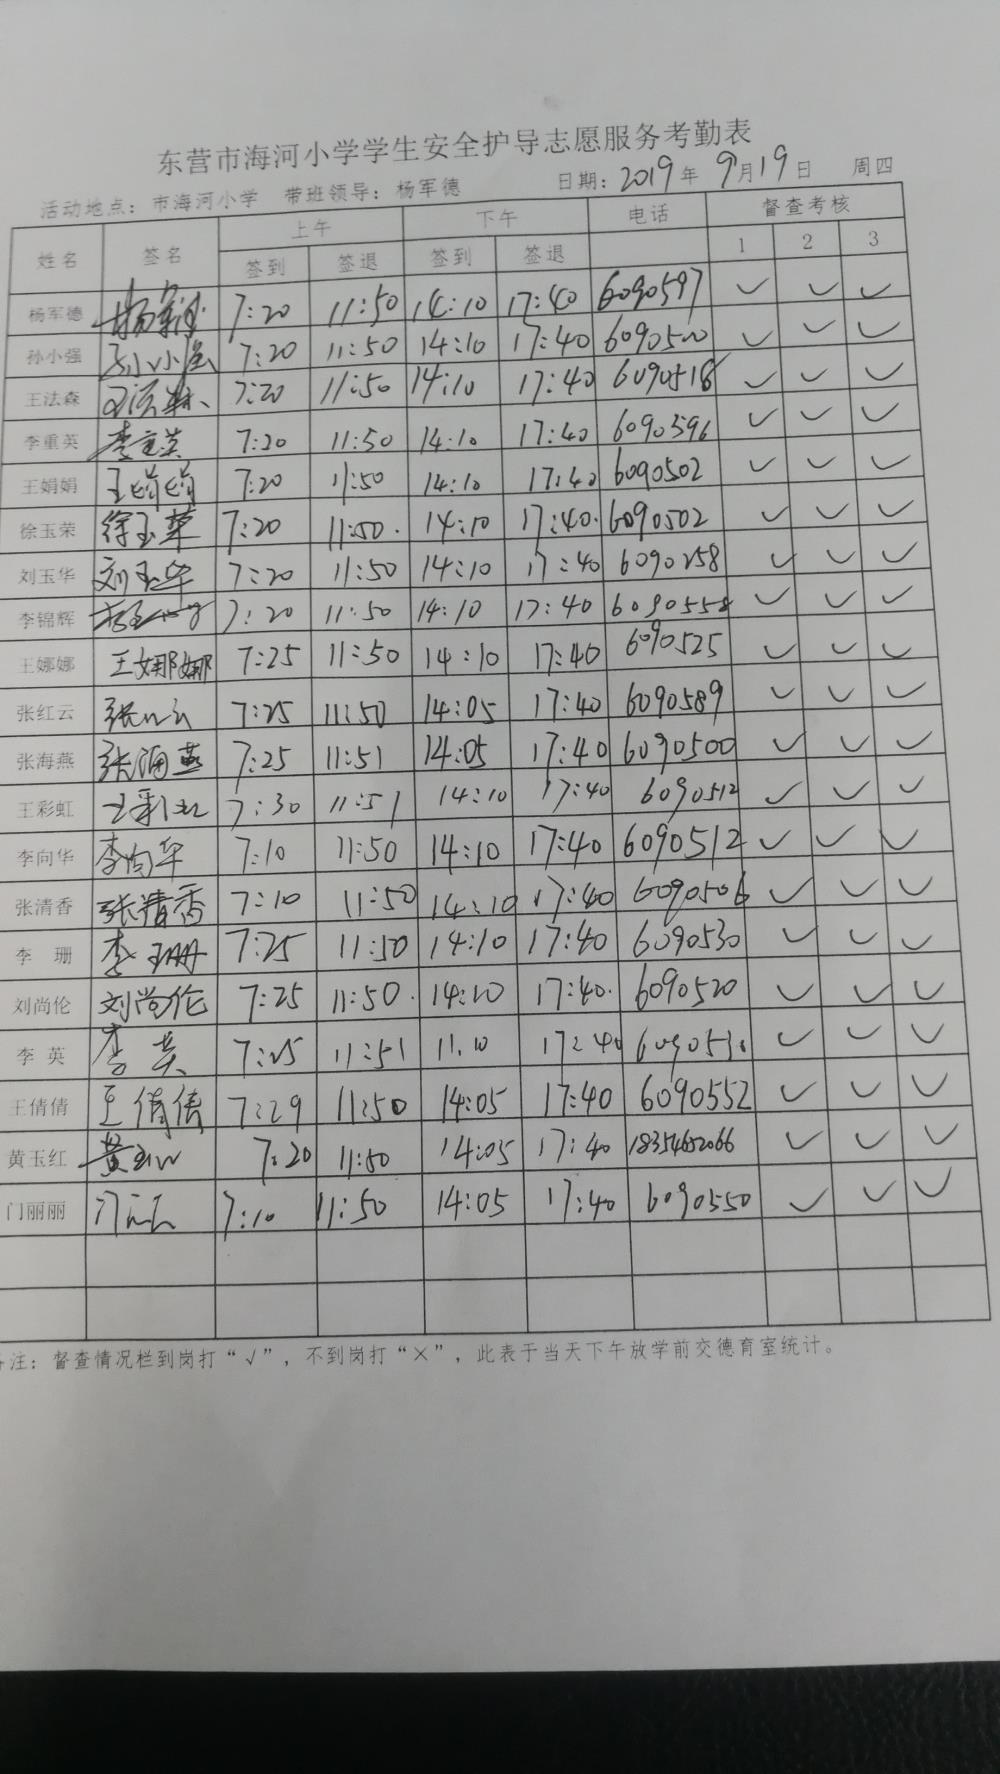 东营市海河小学学生安全护导志愿服务考勤表
活动地点：市海河小学 带班领导：杨军德 日期：2019年9月19日 周四
姓名 签名 上午 下午 电话 督查考核
签到 签退 签到 签退 1 2 3
杨军德 7:20 11:50 14:10 17:40 6090597 ✓ ✓ ✓
孙小强 孙小强 7:20 11:50 14:10 17:40 6090500 ✓ ✓ ✓
王法森 7:20 11:50 14:10 17:40 6090518 ✓ ✓ ✓
李重英 李重英 7:20 11:50 14:10 17:40 6090596 ✓ ✓ ✓
王娟娟 王娟娟 7:20 11:50 14:10 17:40 6090502 ✓ ✓ ✓
徐玉荣 徐玉荣 7:20 11:50. 14:10 17:40. 6090502 ✓ ✓ ✓
刘玉华 刘玉华 7:20 11:50 14:10 17:40 6090258 ✓ ✓ ✓
李锦辉 7:20 11:50 14:10 17:40 6090558 ✓ ✓ ✓
王娜娜 王娜娜 7:25 11:50 14:10 17:40 6090525 ✓ ✓ ✓
张红云 张红云 7:25 11:50 14:05 17:40 6090589 ✓ ✓ ✓
张海燕 张海燕 7:25 11:51 14:05 17:40 6090500 ✓ ✓ ✓
王彩虹 王彩虹 7:30 11:51 14:10 17:40 6090512 ✓ ✓ ✓
李向华 李向华 7:10 11:50 14:10 17:40 6090512 ✓ ✓ ✓
张清香 张清香 7:10 11:50 14:10 17:40 6090506 ✓ ✓ ✓
李 珊 李珊 7:25 11:50 14:10 17:40 6090530 ✓ ✓ ✓
刘尚伦 刘尚伦 7:25 11:50. 14:20 17:40. 6090520 ✓ ✓ ✓
李 英 李英 7:25 11:51 11.10 17:40 ✓ ✓ ✓
王倩倩 王倩倩 7:29 11:50 14:05 17:40 6090552 ✓ ✓ ✓
黄玉红 黄玉红 7:20 11:50 14:05 17:40 18354652066 ✓ ✓ ✓
门丽丽 门丽丽 7:10 11:50 14:05 17:40 6090550 ✓ ✓ ✓
备注：督查情况栏到岗打“√”，不到岗打“×”，此表于当天下午放学前交德育室统计。